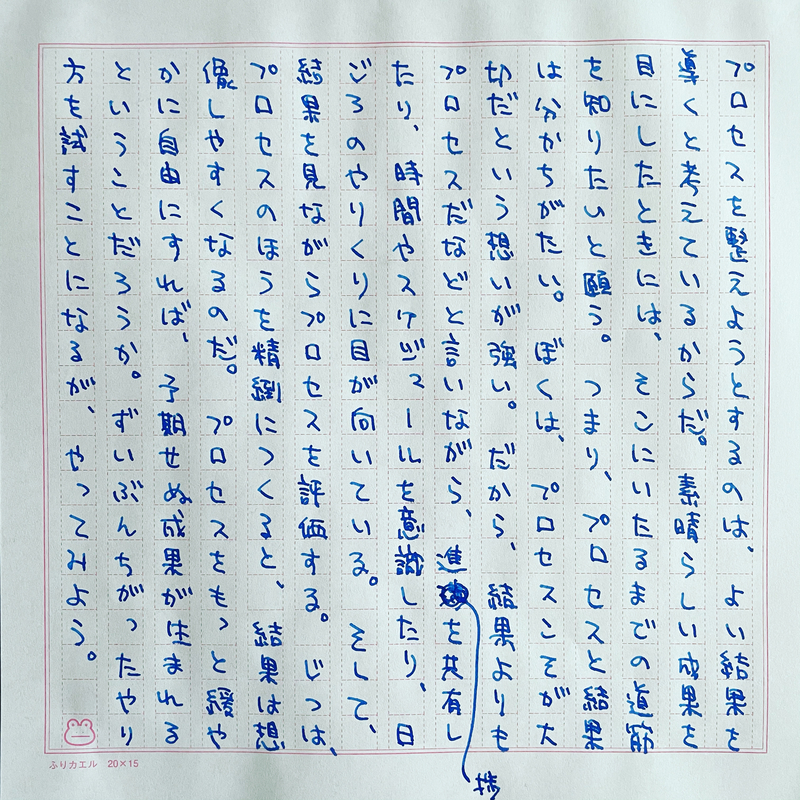 プロセスを整えようとするのは、よい結果を
導くと考えているからだ。素晴らしい成果を
目にしたときには、そこにいたるまでの道筋
を知りたいと願う。つまり、プロセスと結果
は分かちがたい。ぼくは、プロセスこそが大
切だという想いが強い。だから、結果よりも
プロセスだなどと言いながら、進捗を共有し
たり、時間やスケジュールを意識したり、日
ごろのやりくりに目が向いている。そして、
結果を見ながらプロセスを評価する。じつは、
プロセスのほうを精緻につくると、結果は想
像しやすくなるのだ。プロセスをもっと緩や
かに自由にすれば、予期せぬ成果が生まれる
ということだろうか。ずいぶんちがったやり
方を試すことになるが、やってみよう。
ふりカエル 20×15